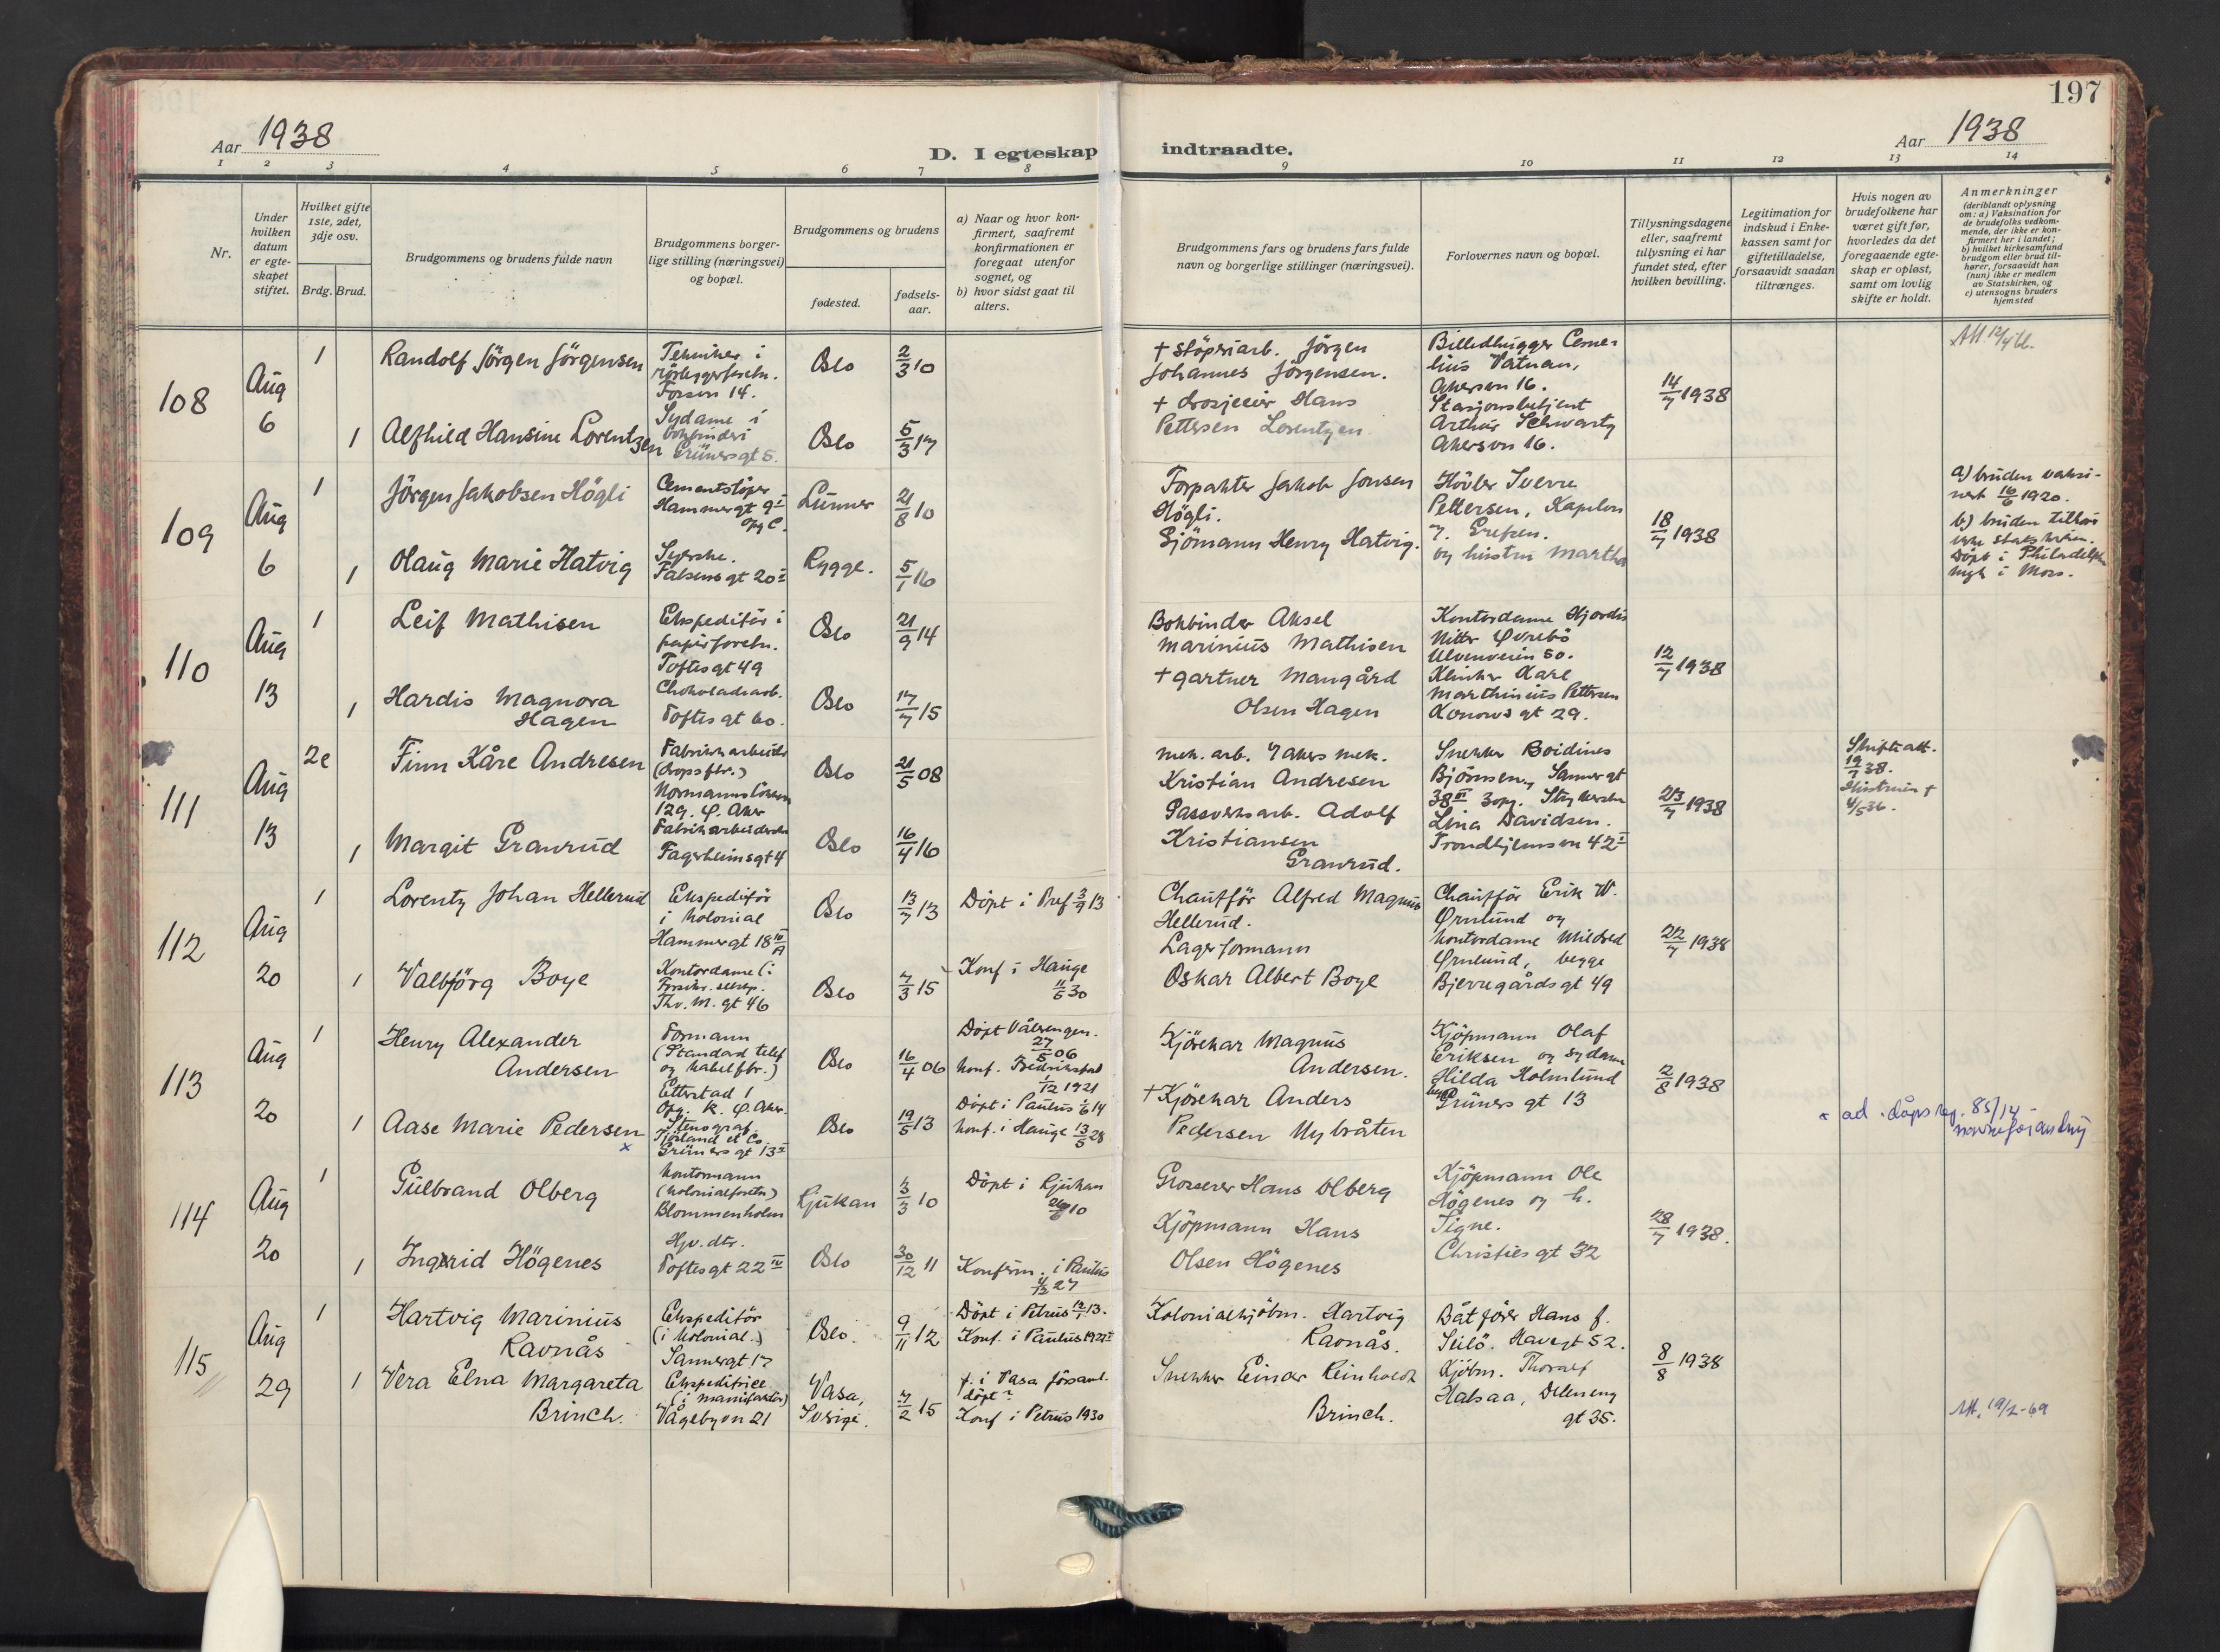 197
Aar 1938
D. I egteskap indtraadte.
Aar 1938
1 2 3 4 5 6 7 8 9 10 11 12 13 14
Nr.
Under hvilken datum er egteskapet stiftet.
Hvilket gifte 1ste, 2det, 3dje osv.
Brdg. Brud.
Brudgommens og brudens fulde navn
Brudgommens borgerlige stilling (næringsvei) og bopæl.
Brudgommens og brudens
fødested.
fødselsaar.
a) Naar og hvor konfirmert, saafremt konfirmationen er foregaat utenfor sognet, og
b) hvor sidst gaat til alters.
Brudgommens fars og brudens fars fulde navn og borgerlige stillinger (næringsvei).
Forlovernes navn og bopæl.
Tillysningsdagene eller, saafremt tillysning ei har fundet sted, efter hvilken bevilling.
Legitimation for indskud i Enkekassen samt for giftetilladelse, forsaavidt saadan tiltrænges.
Hvis nogen av brudefolkene har været gift før, hvorledes da det foregaaende egteskap er opløst, samt om lovlig skifte er holdt.
Anmerkninger
(deriblandt oplysning om: a) Vaksination for de brudefolks vedkommende, der ikke er konfirmert her i landet; b) hvilket kirkesamfund brudgom eller brud tilhører, forsaavidt han (hun) ikke er medlem av Statskirken, og c) utensogns bruders hjemsted
108
Aug 6
1
Randolf Jörgen Jörgensen
Tekniker i
Fossvn 14.
Oslo
2/3 10
+ Støperiarb. Jörgen
Johannes Jörgensen.
Billedhugger Corne-
lius Vatnan,
Akersvn 16.
14/7 1938
1
Alfhild Hansine Lorentzen
Sydame i
bokbinderi
Grünersgt 5.
Oslo
5/3 17
+ drosjeeier Hans
Pettersen Lorentzen
Stasjonsbetjent
Arthur Schwartz
Akersvn 16.
109
Aug 6
1
Jörgen Jakobsen Högli
Cementstöper
Hammergt 9 II
opg C.
Lunner
21/8 10
Forpakter Jakob Jonsen
Högli.
Hövler Sverre
Pettersen, Kapelvn
7. Grefsen.
og hustru Martha
18/7 1938
a) bruden vaksi-
nert 16/6 1920.
b) bruden tilhör
ikke statskirken.
Döpt i Philadelphia
mgh i Moss.
1
Olaug Marie Hatvig
Syerske.
Falsens gt 20 I
Rygge.
5/1 16
Sjömann Henry Hatvig.
110
Aug 13
1
Leif Mathisen
Ekspeditör i
papirforretn.
Toftesgt 49
Oslo
21/9 14
Bokbinder Aksel
Marinius Mathisen
Kontordame Hjördis
Nitter Øvrebö
Ulvenveien 50.
12/7 1938
1
Hardis Magnora
Hagen
Chokoladearb.
Toftes gt 60.
Oslo
17/7 15
+ gartner Mangård
Olsen Hagen
Klinker Karl
Marthinius Pettersen
Konows gt 29.
111
Aug 13
2e
Finn Kåre Andresen
Fabrikkarbeider
(dropsfbr.)
129. Ø. Aker
Oslo
21/5 08
mek. arb. v/ Akers mek.
Kristian Andresen
Snekker Boidines
Björnsen, Sannergt
38 III 3opg. Strykerske
23/7 1938
Skifteatt.
19/7 38.
Hustruen +
4/5 36.
1
Margit Granrud
Fabrikarbeiderske
Fagerheimsgt 4
Oslo
16/4 16
Gassverksarb. Adolf
Kristiansen
Granrud.
Lina Davidsen.
Trondhjemsvn 42 I
112
Aug 20
1
Lorentz Johan Hellerud
Ekspeditör
i kolonial
Hammergt 18 IV A
Oslo
13/7 13
Döpt i Pref 3/9 13
Chaufför Alfred Magnus
Hellerud.
Chaufför Erik W.
Ørnlund og
kontordame Mildred
Ørnlund, begge
Bjerregårdsgt 49
22/7 1938
1
Valbjörg Boye
Kontordame (i
Forsikr. selsk.
Thv. M. gt 46
Oslo
7/3 15
Konf i Hauge
11/5 30
Lagerformann
Oskar Albert Boye
113
Aug 20
1
Henry Alexander
Andersen
Formann
(Standard telef
og kabelfbr.)
Etterstad 1
Opg. K. Ø. Aker.
Oslo
16/4 06
Döpt Vålerengen.
27/5 06
konf. Fredrikstad
1/12 1921
Kjörekar Magnus
Andersen.
Kjöpmann Olaf
Eriksen og sydame
Hilda Holmlund
begge
Grüners gt 13
2/8 1938
1
Aase Marie Pedersen x
Stenograf
Grüners gt 13 II
Oslo
19/5 13
Döpt i Paulus 1/6 14
konf. i Hauge 13/5 28
+ Kjörekar Anders
Pedersen Nybråten
x ad. dåpsreg. 85/14
navneforandring
114
Aug 20
1
Gulbrand Olberg
Kontormann
(kolonialforretn)
Blommenholm
Rjukan
3/3 10
Döpt i Rjukan
Grosserer Hans Olberg
Kjöpmann Ole
Högenes og h.
Signe.
Christies gt 32
28/7 1938.
1
Ingerid Högenes
Hjv. dtr.
Toftesgt 22 IV
Oslo
30/12 11
Konfirm. i Paulus
Kjöpmann Hans
Olsen Högenes
115
Aug 29
1
Hartvig Marinius
Ravnås
Ekspeditör
(i kolonial.)
Sannergt 17
Oslo.
9/11 12
Döpt i Petrus 12/1 13.
Konf. i Paulus
Kolonialkjöbm. Hartvig
Ravnås.
Båtförer Hans J.
Seilö. Havegt 52.
8/8 1938
1
Vera Elna Margareta
Brinch.
Ekspeditrice
(i manufaktur)
Vågebyvn 21
Vasa,
Sverige.
7/2 15
f. i Vasa församl.
döpt?
Konf i Petrus 1930
Snekker Einar Reinholdt
Brinch.
Kjöbm. Thoralf
Halsaa, Delenen­g
gt 35.
Att. 19/2-69